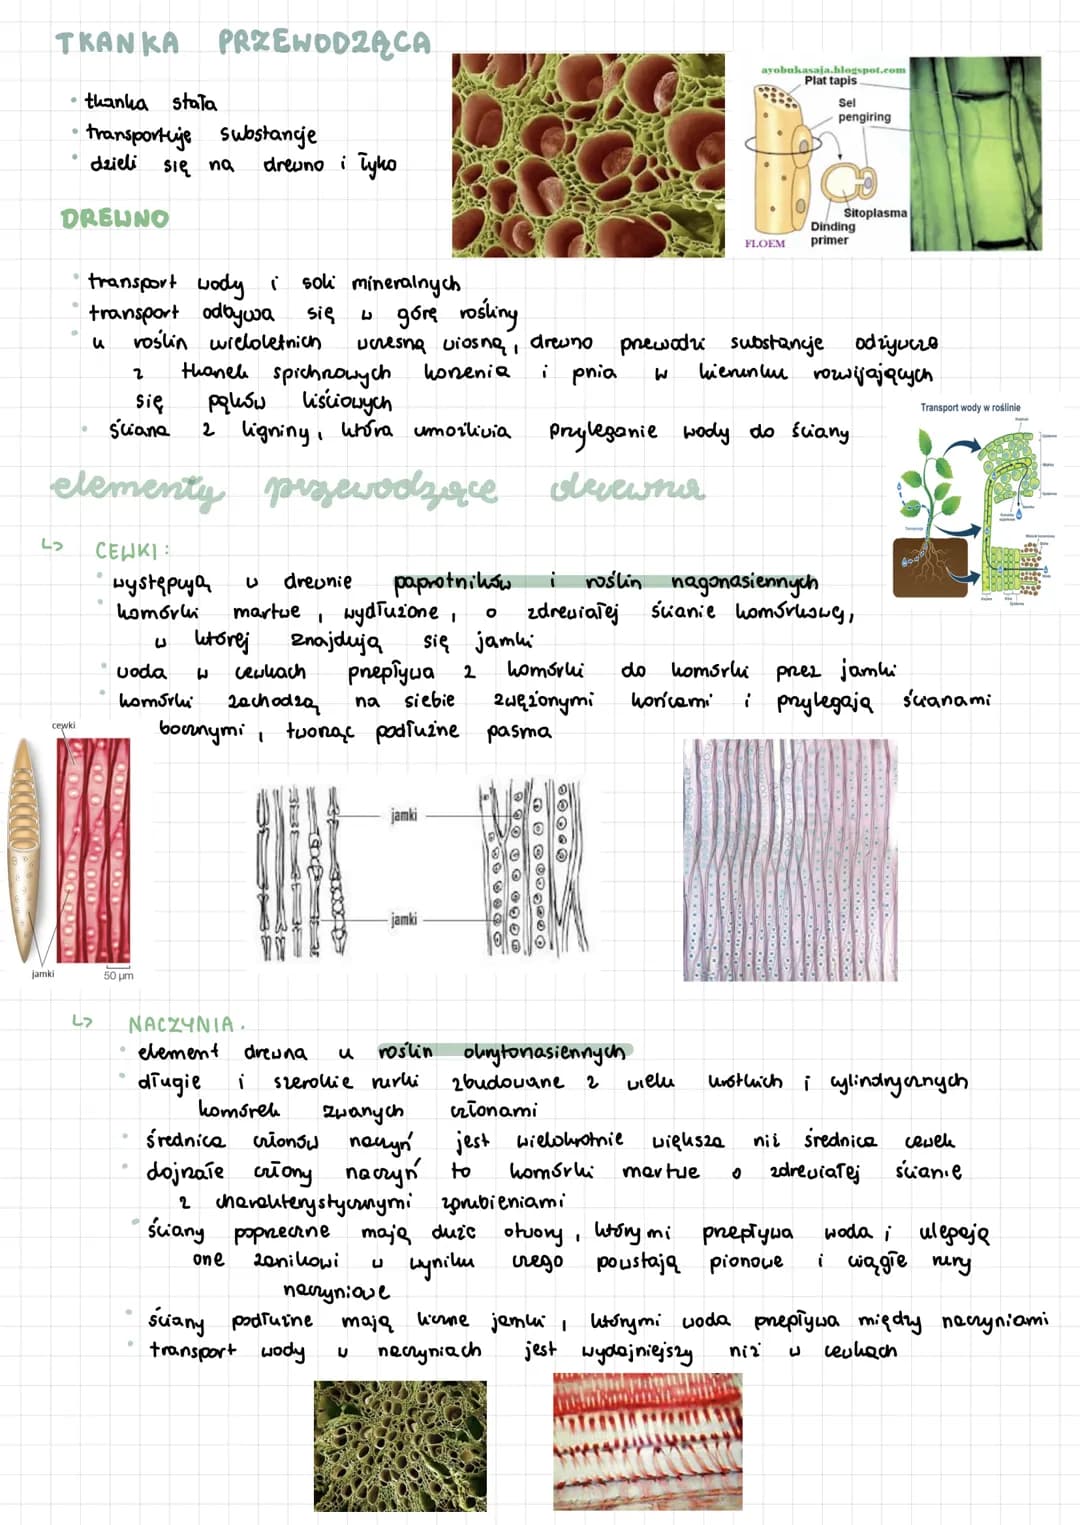 TKANKA PRZEWODZĄCA
• tkanka stała
• transportuje substancje
• dzieli się na drewno i łyko
ayobukasaja.blogspot.com
Plat tapis
Sel
pengiring
Sitoplasma
Dinding
primer
FLOEM
DREWNO
• transport wody i soli mineralnych
• transport odbywa się w górę rośliny
• u roślin wieloletnich wczesną wiosną, drewno przewodzi substancje odżywcze
z tkanek spichrzowych korzenia i pnia w kierunku rozwijających
się pąków liściowych
• ściana z ligniny, która umożliwia przyleganie wody do ściany
Transport wody w roślinie
elementy przewodzące drewna
↳ CEWKI:
• występują w drewnie paprotników i roślin nagonasiennych
• komórki martwe, wydłużone, o zdrewiałej ścianie komórkowej,
w której znajdują się jamki
• woda w cewkach przepływa z komórki do komórki przez jamki
• komórki zachodzą na siebie zwężonymi końcami i przylegają ścianami
bocznymi, tworząc podłużne pasma
cewki
jamki
jamki
jamki
50 µm
↳ NACZYNIA.
• element drewna u roślin okrytonasiennych
• długie i szerokie rurki zbudowane z wielu krótkich i cylindrycznych
komórek zwanych członami
• średnica członów naczyń jest wielokrotnie większa niż średnica cewek
• dojrzałe człony naczyń to komórki martwe o zdrewiałej ścianie
z charakterystycznymi zgrubieniami
• ściany poprzeczne mają duże otwory, którymi przepływa woda i ulegają
one zanikowi w wyniku czego powstają pionowe i ciągłe rury
naczyniowe
• ściany podłużne mają liczne jamki, którymi woda przepływa między naczyniami
• transport wody w naczyniach jest wydajniejszy niż w cewkach